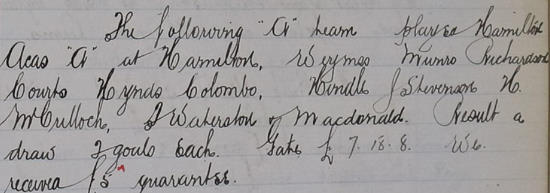 The following "A" team played Hamilton
Acas "A" at Hamilton, Weymss Munro Richardson
Courts Hynds Colombo, Hindle J Stevenson H.
McCulloch, J Waterston & Macdonald. Result a
draw 2 goals each. Gate £ 7. 18. 8. We.
received £5 guarantee.